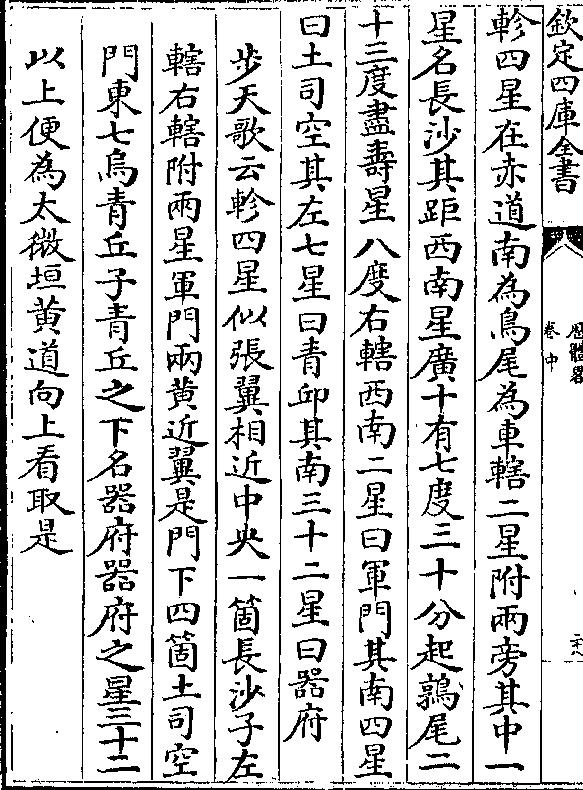 欽定四庫全書
厯體畧
卷中
軫四星在赤道南為鳥尾為車轄二星附兩旁其中一
星名長沙其距西南星廣十有七度三十分起鶉尾二
十三度盡壽星八度右轄西南二星曰軍門其南四星
曰土司空其左七星曰青邱其南三十二星曰器府
步天歌云軫四星似張翼相近中央一箇長沙子左
轄右轄附兩星軍門兩黄近翼是門下四箇土司空
門東七烏青丘子青丘之下名器府器府之星三十二
以上便為太微垣黄道向上看取是